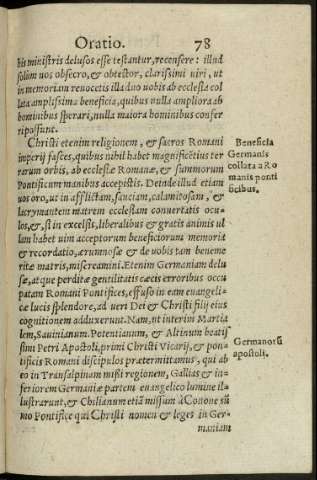 Oratio. 78
his ministris delusos esse testantur, recensere: illud
solùm uos obsecro, & obtestor, clarissimi uiri, ut
in memoriam reuocetis illa duo uobis ab ecclesia col
lata amplissima beneficia, quibus nulla ampliora ab
hominibus sperari, nulla maiora hominibus confer
ri possunt.
Christi etenim religionem, & sacros Romani
imperij fasces, quibus nihil habet magnificẽtius ter
rarum orbis, ab ecclesiæ Romanæ, & summorum
Pontificum manibus accepistis. Deinde illud etiam
uos oro, ut in afflictam, sauciam, calamitosam, &
lacrymantem matrem ecclesiam conuertatis ocu-
los, &, si in excelsis, liberalibus & gratis animis ul
lam habet uim acceptorum beneficiorum memoria
& recordatio, ærumnosæ & de uobis tam beneme
ritæ matris, misereamini. Etenim Germaniam delu
sæ, atque perditæ gentilitatis cæcis erroribus occu
patam Romani Pontifices, effuso in eam euangeli-
cæ lucis splendore, ad ueri Dei & Christi filij eius
cognitionem adduxerunt. Nam, ut interim Martia
lem, Sauinianum, Potentianum, & Altinum beatis
simi Petri Apostoli, primi Christi Vicarij, & pon-
tificis Romani discipulos prætermittamus, qui ab
eo in Transalpinam missi regionem, Gallias & in-
ferioris Germaniæ partem euangelico lumine il-
lustrarunt, & Chilianum etiã missum à Conone sũ
mo Pontifice qui Christi nomen & leges in Ger-
maniam
Beneficia
Germanis
collata a Ro
manis ponti
ficibus.
Germanorũ
apostoli.